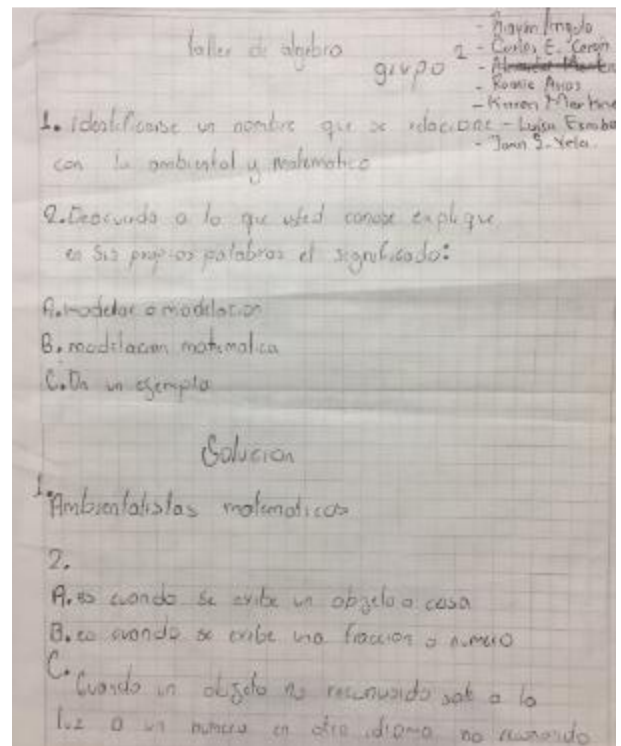 taller de algebra
grupo 2
- Carlos E. Ceron
- Karen Martine
- Luisa Escoba
- Joan S. Vela.
1. identificarse un nombre que se relacione
con lo ambiental y matematico
2. Deacuerdo a lo que usted conose explique
en sus propias palabras el significado:
A. modelar o modelacion
B. modelacion matematica
C. De un ejemplo
Solucion
1. Ambientalistas matematicos
2.
A. es cuando se exibe un objeto o cosa
B. es cuando se exibe una fraccion o numero
C. Cuando un objeto no reconosido sale a la
luz o un numero en otro idioma no reconosido